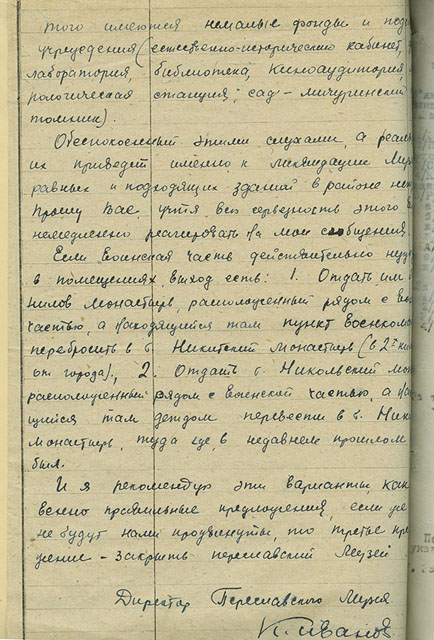 того имеются немалые фонды и
учреждения (естественно-исторический кабинет,
лаборатория, библиотека, киноаудитория,
рологическая станция, сад-мичуринский
томник).
Обеспокоенный этими слухами, а
их приведет именно к ликвидации
равных и подходящих зданий в районе
Прошу Вас, учтя всю серьезность этого
немедленно реагировать на мои сообщения.
Если воинская часть действительно
в помещениях, выход есть: 1. Отдать им
нилов монастырь, расположенный рядом с
частью, а находящийся там пункт
перебросить в б. Никитский монастырь (в 2х
от города), 2. Отдать б. Никольский
расположенный рядом с воинской частью, а
щийся там детдом перевести в б.
монастырь, туда где в недавнем прошлом
был.
И я рекомендую эти варианты, как
венно правильные предложения, если
не будут вами продвинуты, то третье
жение - закрыть переславский музей
Директор Переславского Музея
К. Иванов